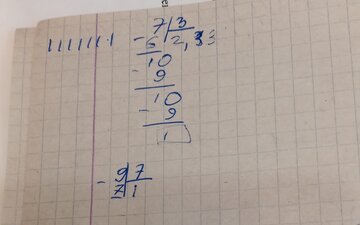 1111111
- 7 | 3
6 2,33
10
- 9
10
- 9
1
- 9 | 7
7 1